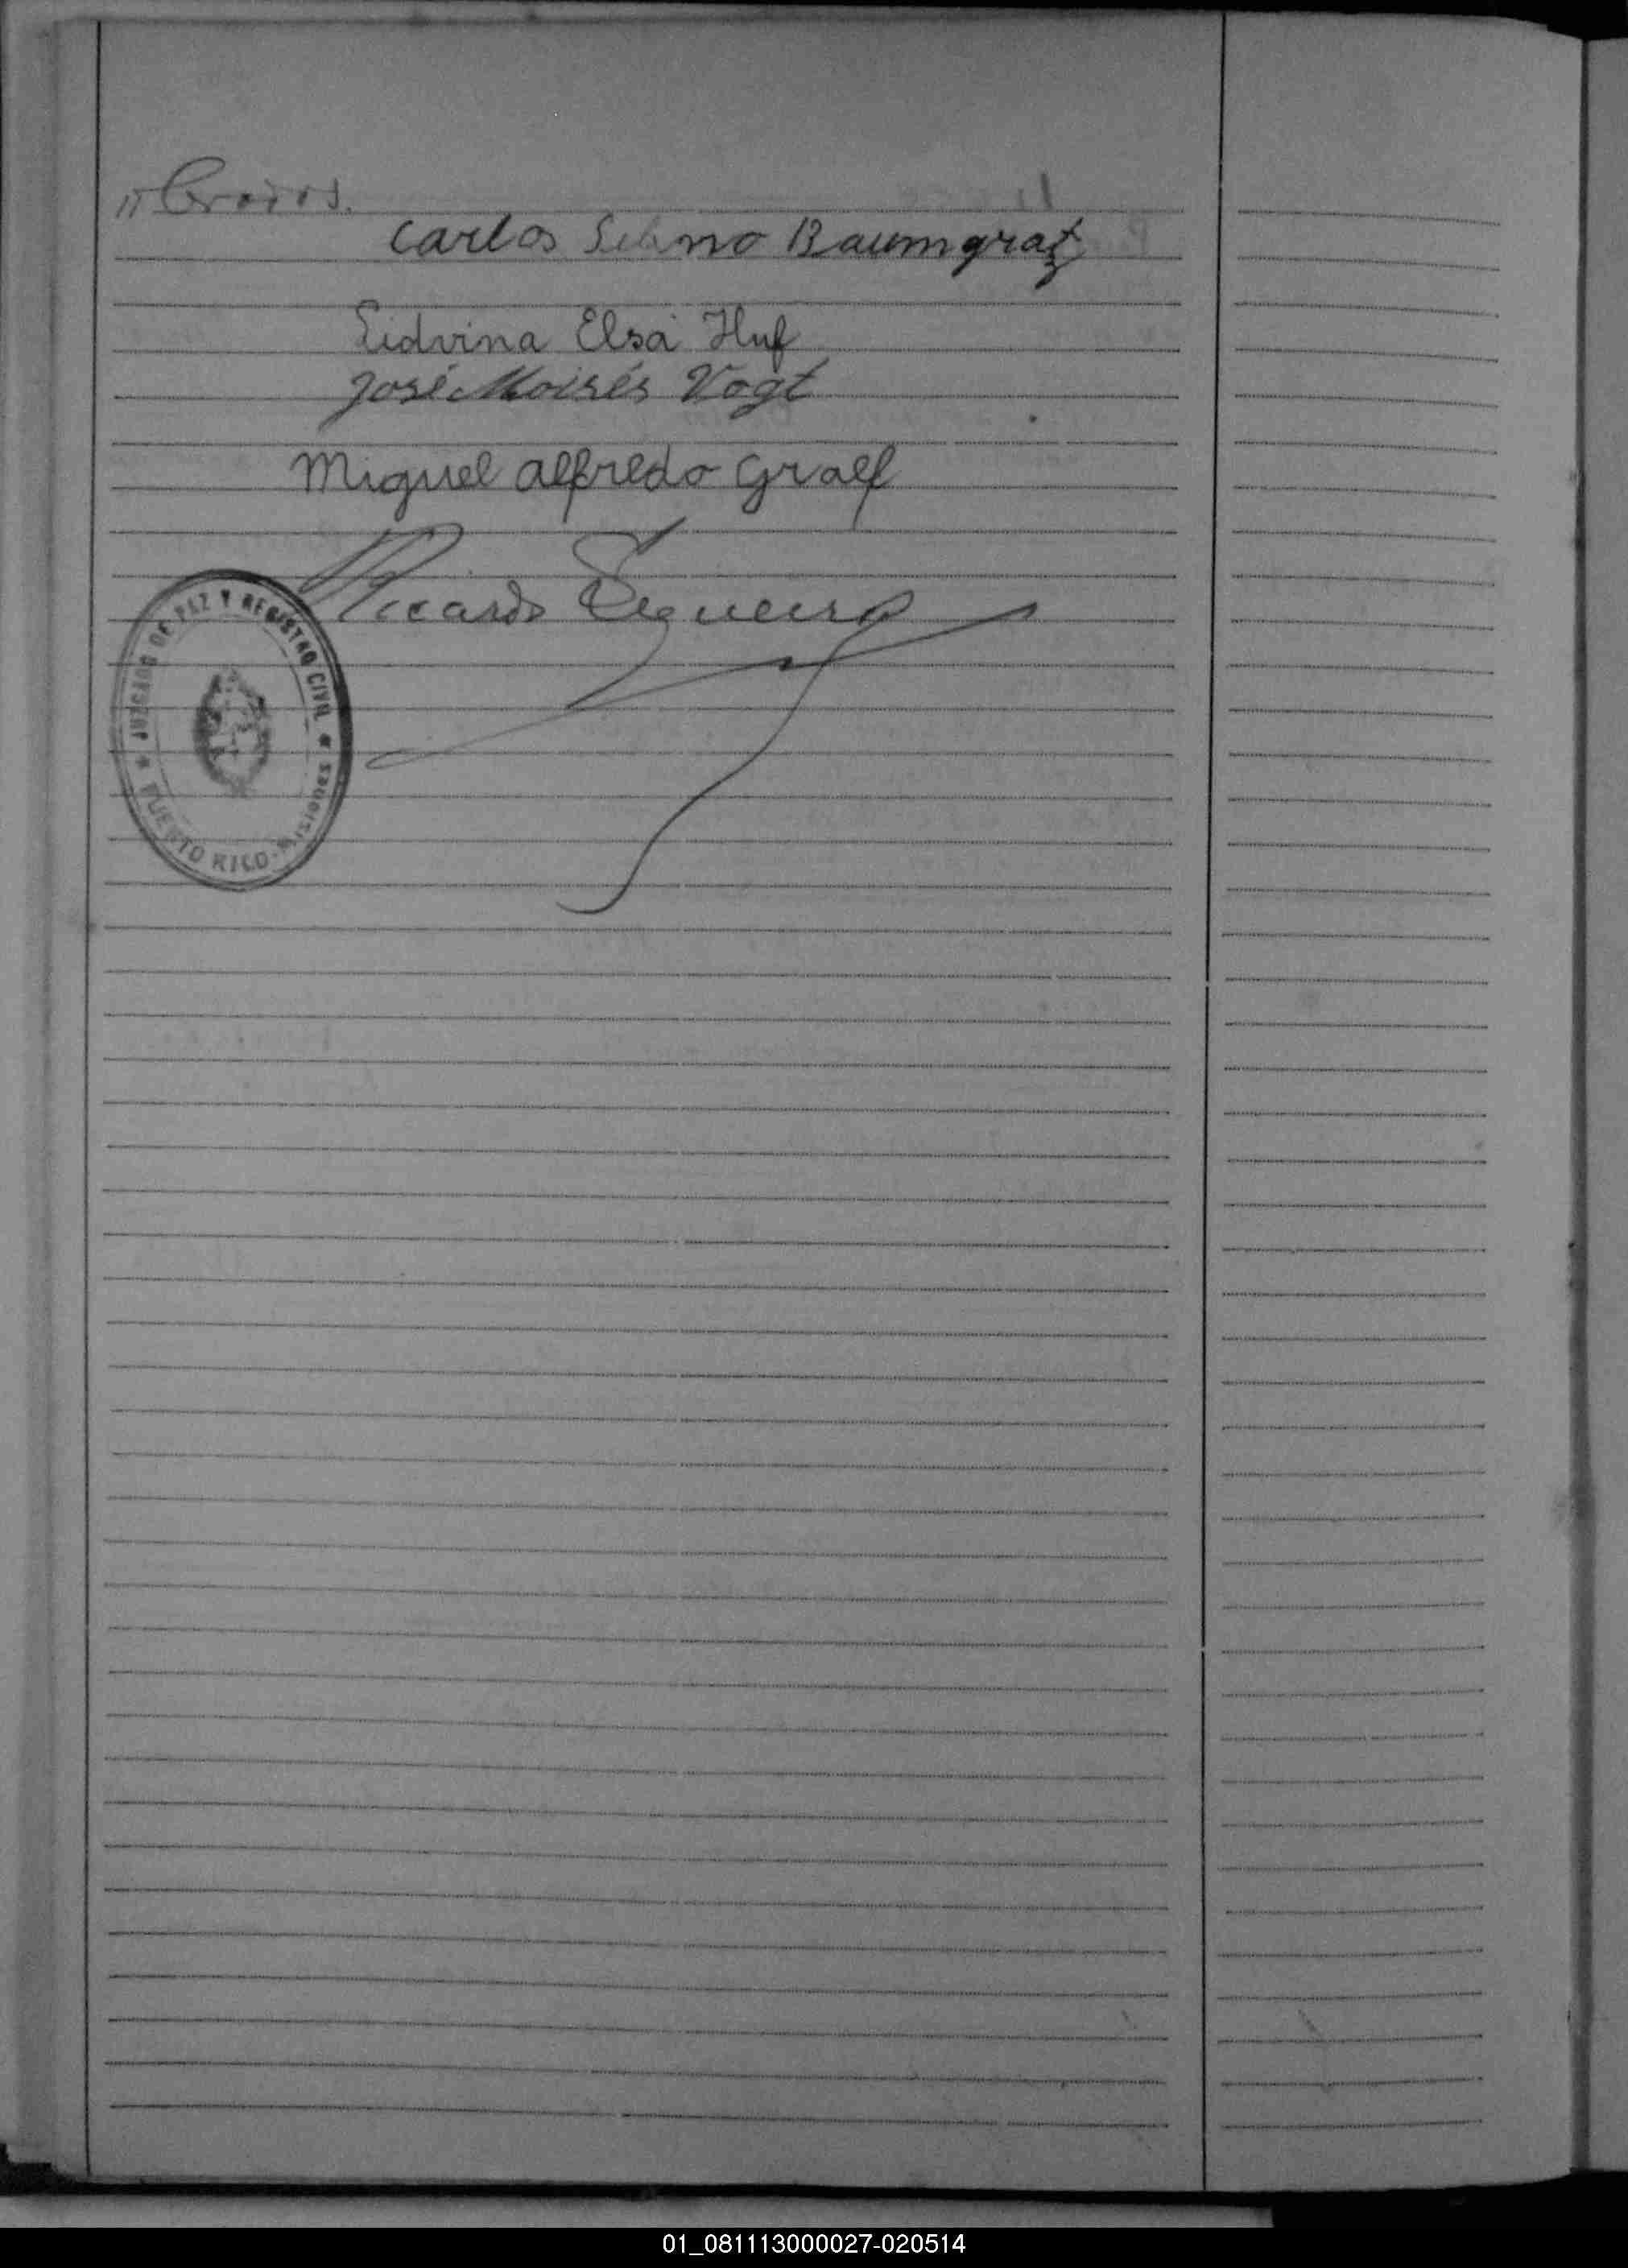 Carlos Baumgratz
Lidvina Elsa Huf
José Moisés Vogt
Miguel Alfredo Graef
Ricardo Sequeira
JUZGADO DE PAZ Y REGISTRO CIVIL
★ PUERTO RICO - Misiones ★
01_081113000027-020514